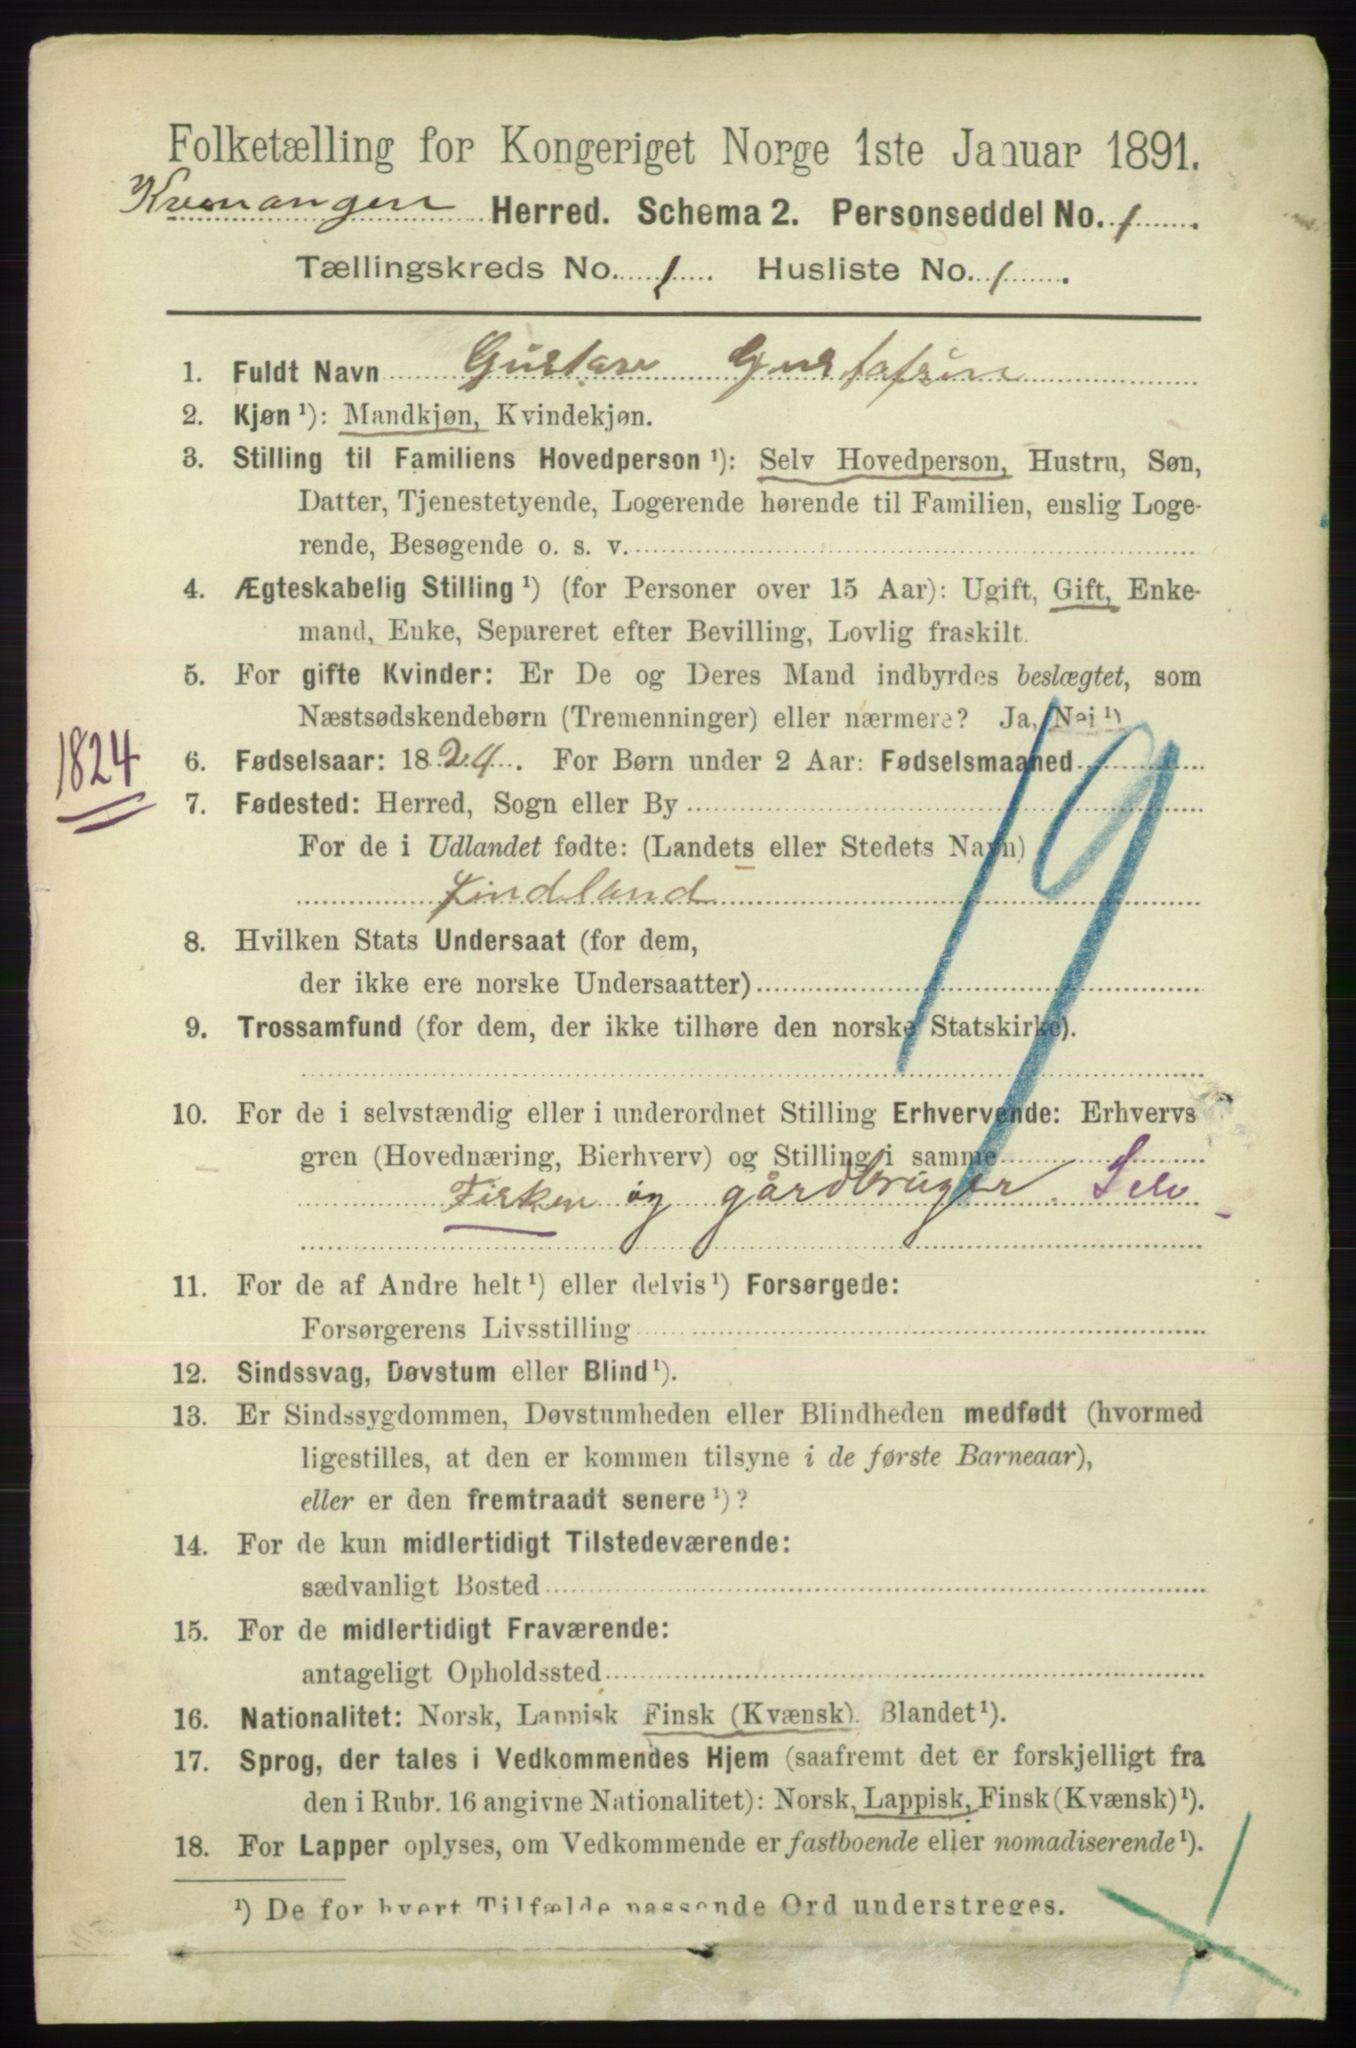 Folketælling for Kongeriget Norge 1ste Januar 1891.
Kvænangen Herred. Schema 2. Personseddel No. 1
Tællingskreds No. 1. Husliste No. 1.
1. Fuldt Navn Gustav Gustafsen
2. Kjøn ¹): Mandkjøn, Kvindekjøn.
3. Stilling til Familiens Hovedperson ¹): Selv Hovedperson, Hustru, Søn,
Datter, Tjenestetyende, Logerende hørende til Familien, enslig Loge-
rende, Besøgende o. s. v.
4. Ægteskabelig Stilling ¹) (for Personer over 15 Aar): Ugift, Gift, Enke-
mand, Enke, Separeret efter Bevilling, Lovlig fraskilt.
5. For gifte Kvinder: Er De og Deres Mand indbyrdes beslægtet, som
Næstsødskendebørn (Tremenninger) eller nærmere? Ja, Nei ¹)
1824
6. Fødselsaar: 1824. For Børn under 2 Aar: Fødselsmaaned
7. Fødested: Herred, Sogn eller By
For de i Udlandet fødte: (Landets eller Stedets Navn)
Findland
19
8. Hvilken Stats Undersaat (for dem,
der ikke ere norske Undersaatter)
9. Trossamfund (for dem, der ikke tilhøre den norske Statskirke).
10. For de i selvstændig eller i underordnet Stilling Erhvervende: Erhvervs
gren (Hovednæring, Bierhverv) og Stilling i samme
Fisker og gårdbruger. Selv
11. For de af Andre helt ¹) eller delvis ¹) Forsørgede:
Forsørgerens Livsstilling
12. Sindssvag, Døvstum eller Blind ¹).
13. Er Sindssygdommen, Døvstumheden eller Blindheden medfødt (hvormed
ligestilles, at den er kommen tilsyne i de første Barneaar),
eller er den fremtraadt senere ¹)?
14. For de kun midlertidigt Tilstedeværende:
sædvanligt Bosted
15. For de midlertidigt Fraværende:
antageligt Opholdssted
16. Nationalitet: Norsk, Lappisk Finsk (Kvænsk). Blandet ¹).
17. Sprog, der tales i Vedkommendes Hjem (saafremt det er forskjelligt fra
den i Rubr. 16 angivne Nationalitet): Norsk, Lappisk, Finsk (Kvænsk) ¹).
18. For Lapper oplyses, om Vedkommende er fastboende eller nomadiserende ¹).
¹) De for hvert Tilfælde passende Ord understreges.